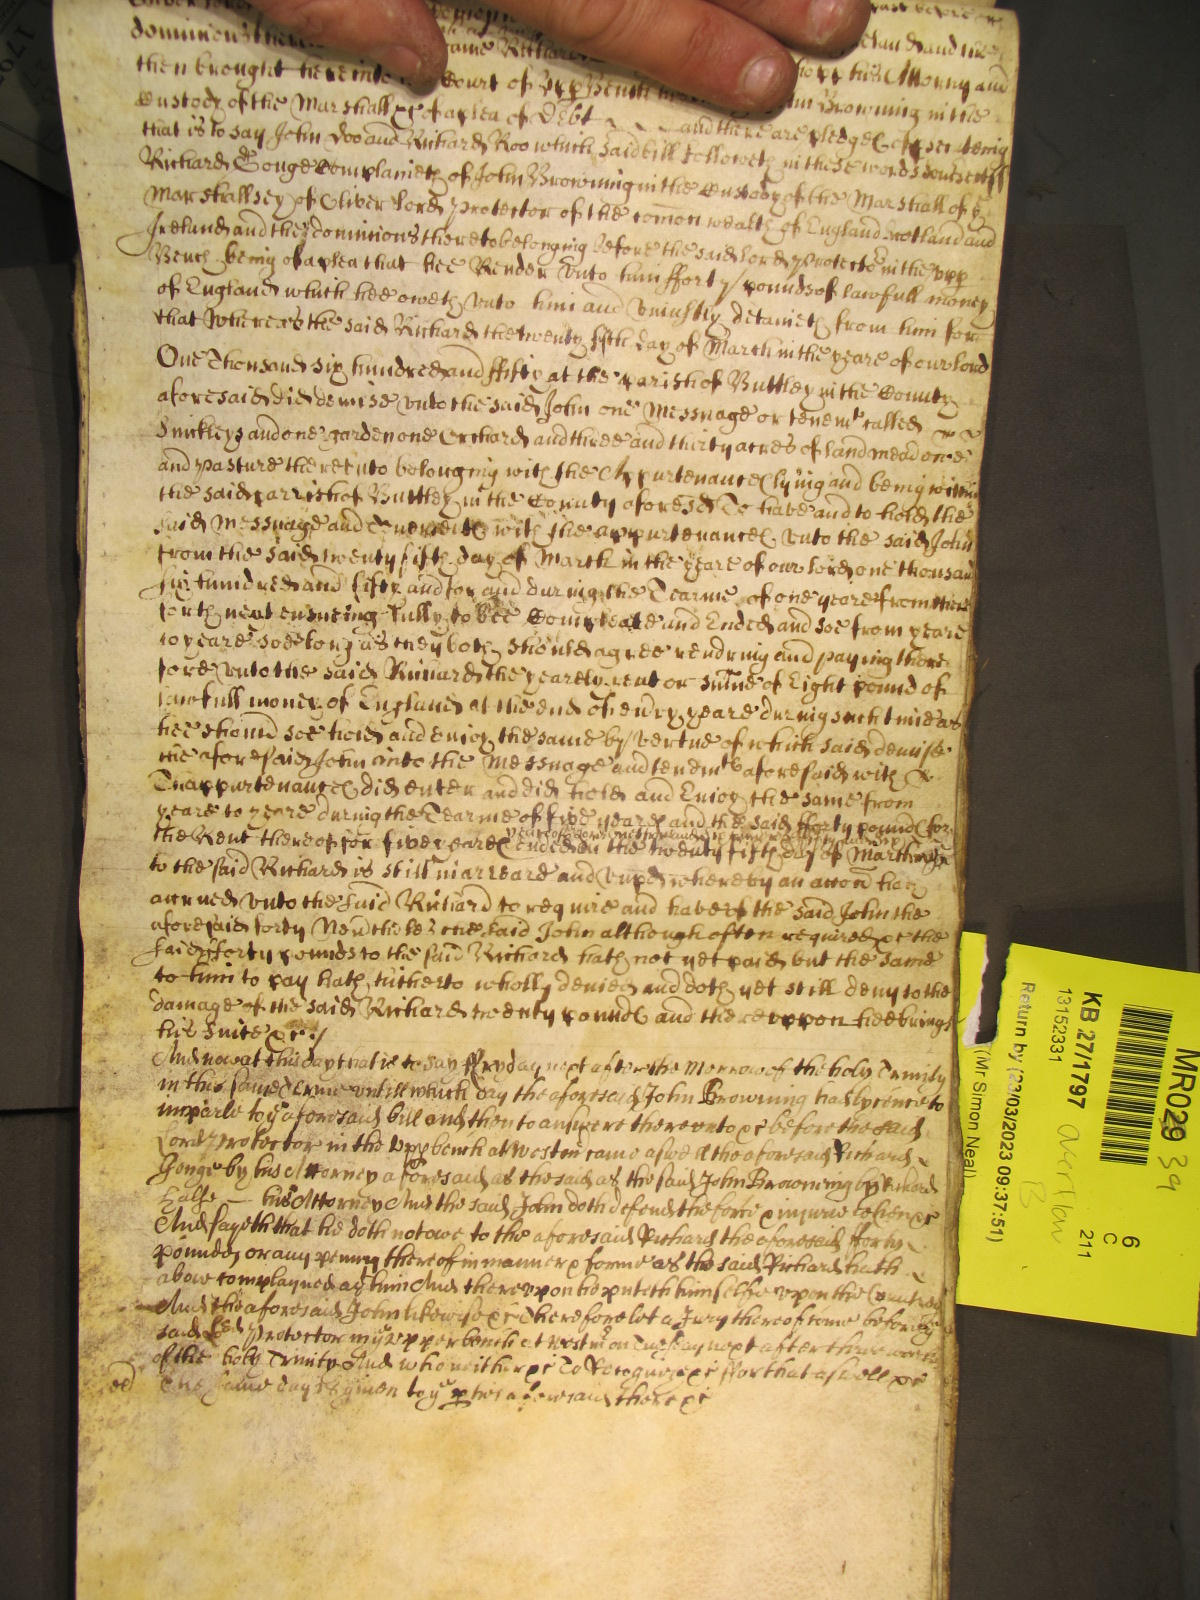 dominions there same Richard
then brought here into Court of upp Bench Browning in the
Custody of the Marshall &c of a plea of Debt and there are pledges
that is to say John Doo and Richard Roo which said bill followeth in these words
Richard Gouge Complaineth of John Browning in the Custody of the Marshall of ye
Marshallsey of Oliver lord Protector of the comon wealth of England Scotland and
Ireland and the dominions thereto belonging before the said lord Protector in the upp
Bench being of a plea that hee Render unto him fforty pounds of lawfull money
of England which hee oweth unto him and uniustly detaineth from him for
that Whereas the said Richard the twenty fifth day of March in the yeare of our lord
One Thousand six hundred and ffifty at the parish of Buttley in the County
aforesaid did demise unto the said John one Messuage or tenemt called
and one garden one Orchard and three and thirty acres of land meadowe
and pasture thereunto belonging with the Appurtenances lying and being within
the said parrish of Buttley in the County aforesd To have and to hold the
said Messuage and with the appurtenances unto the said John
from the said twenty fifth day of March in the yeare of our lord one thousand
six hundred and fifty and for and during the Tearme of one yeare from thence
forth next ensueing fully to bee Compleate and Ended and soe from yeare
to yeare soe long as they both should agree rendring and paying there
fore unto the said Richard the yearely rent or sume of Eight pound of
lawfull money of England at the end of every yeare during such time as
hee should soe hold and enioy the same by vertue of which said demise
the aforesaid John into the Messuage and tenemts aforesaid with
Thappurtenances did enter and did hold and Enioy the same from
yeare to yeare during the Tearme of five yeares and the said fforty pounds for
the Rent thereof for five yeares Ended on the twenty fifth day of March
to the said Richard is still in arreare and unpd whereby an accon hath
accrued unto the said Richard to require and have of the said John the
aforesaid forty Neverthelesse the said John although often required &c the
said fforty pounds to the said Richard hath not yet paid but the same
to him to pay hath hitherto wholly denied and doth yet still deny to the
damage of the said Richard twenty pounds and thereuppon hee brings
his Suite &c
And now at this day that is to say ffryday next after the Morrow of the holy Trinity
in this same Terme untill which day the aforesaid John Browning had lycence to
imparle to ye aforesaid bill and then to answere thereunto &c before the said
Lord Protector in the uppbench at Westm came aswell the aforesaid Richard
Gouge by his Attorney aforesaid as the said as the said John Browning by Richard
his Attorney And the said John doth defend the force & iniurie when &c
And sayeth that he doth not owe to the aforesaid Richard the aforesaid fforty
pounds or any penny thereof in manner & forme as the said Richard hath
above complayned agt him And thereupon he putteth himselfe upon the Country
And the aforesaid John likewise &c Therefore let a Jury thereof come before ye
said Lord Protector in ye upperbench at Westmr on Tuesday next after three weeks
of the holy Trinity And who neither &c To Recognise &c ffor that aswell &c
The same day is given to ye ptyes aforesaid there &c
MR029 39
KB 27/1797
13152331
Return by (23/03/2023 09:37:51)
(Mr Simon Neal)
6
C
211